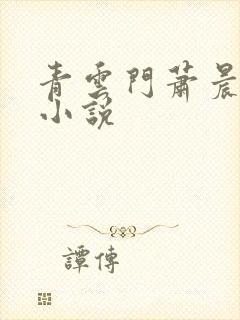 青雲門蕭晨
小說
譚傳